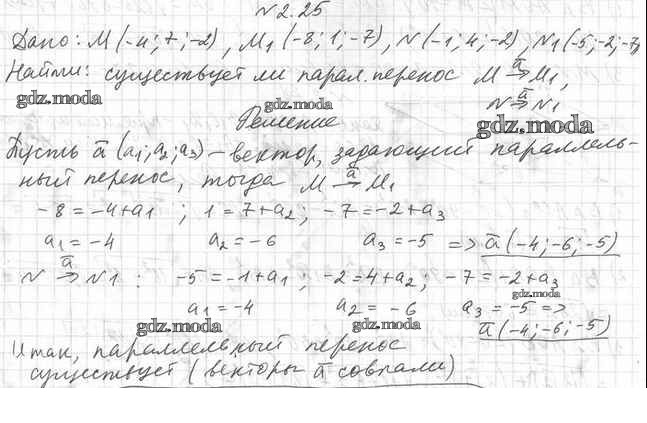 № 2.25
Дано: M (-4; 7; -2), M1 (-8; 1; -7), N (-1; 4; -2), N1 (-5; -2; -7)
Найти: существует ли парал. перенос M →ā M1,
gdz.moda
gdz.moda
N →ā N1
Решение
gdz.moda
Пусть ā (a1; a2; a3) – вектор, задающий параллель-
ный перенос, тогда M →ā M1
-8 = -4 + a1 ; 1 = 7 + a2 ; -7 = -2 + a3
a1 = -4 a2 = -6 a3 = -5 => ā (-4; -6; -5)
N →ā N1 : -5 = -1 + a1 ; -2 = 4 + a2 ; -7 = -2 + a3
gdz.moda
a1 = -4 a2 = -6 a3 = -5 =>
gdz.moda
gdz.moda
ā (-4; -6; -5)
gdz.moda
Итак, параллельный перенос
существует (векторы ā совпали)